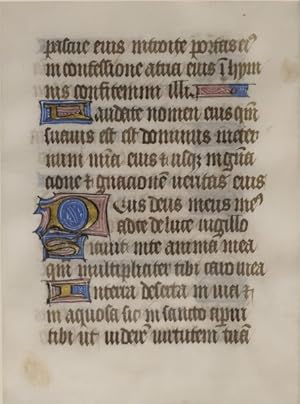 pascue eius introite portas ei⁹
in confessione atria eius ī hym
nis confitemini illi.
Laudate nomen eius qm̄
suauis est est dominus mater
num mīa eius & usqꝫ in gn̄a
cione & gnacionē veritas eius
Deus deus meus me⁹
ad te de luce uigillo
Siciuit in te anima mea
qm̄ multipliciter tibi caro mea
In terra deserta in uia &
in aquosa sic in sancto aparui
tibi ut viderē virtutem tuā